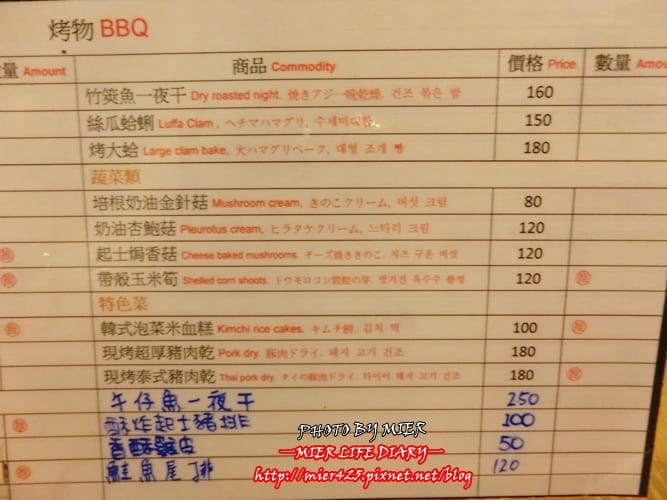 烤物 BBQ
量 Amount 商品 Commodity 價格 Price 數量 Amou
竹筴魚一夜干 Dry roasted night. 焼きアジ一晩乾燥. 건조 볶은 밤 160
絲瓜蛤蜊 Luffa Clam , ヘチマハマグリ, 수세미대합 150
烤大蛤 Large clam bake, 大ハマグリベーク, 대형 조개 빵 180
蔬菜類
培根奶油金針菇 Mushroom cream, きのこクリーム, 버섯 크림 80
奶油杏鮑菇 Pleurotus cream, ヒラタケクリーム, 느타리 크림 120
起士焗香菇 Cheese baked mushrooms. チーズ焼ききのこ. 치즈 구운 버섯 120
帶殼玉米筍 Shelled corn shoots, トウモロコシ殻粒の芽. 벗겨진 옥수수 120
特色菜
韓式泡菜米血糕 Kimchi rice cakes. キムチ餅. 김치 떡 100
現烤超厚豬肉乾 Pork dry. 豚肉ドライ. 돼지 고기 건조 180
現烤泰式豬肉乾 Thai pork dry. タイの豚肉ドライ. 타이어 돼지 고기 건조 180
午仔魚一夜干 250
酥炸起士豬排 100
香酥雞皮 50
鮭魚尾排 120
PHOTO BY MIER
MIER LIFE DIARY
http://mier425.pixnet.net/blog